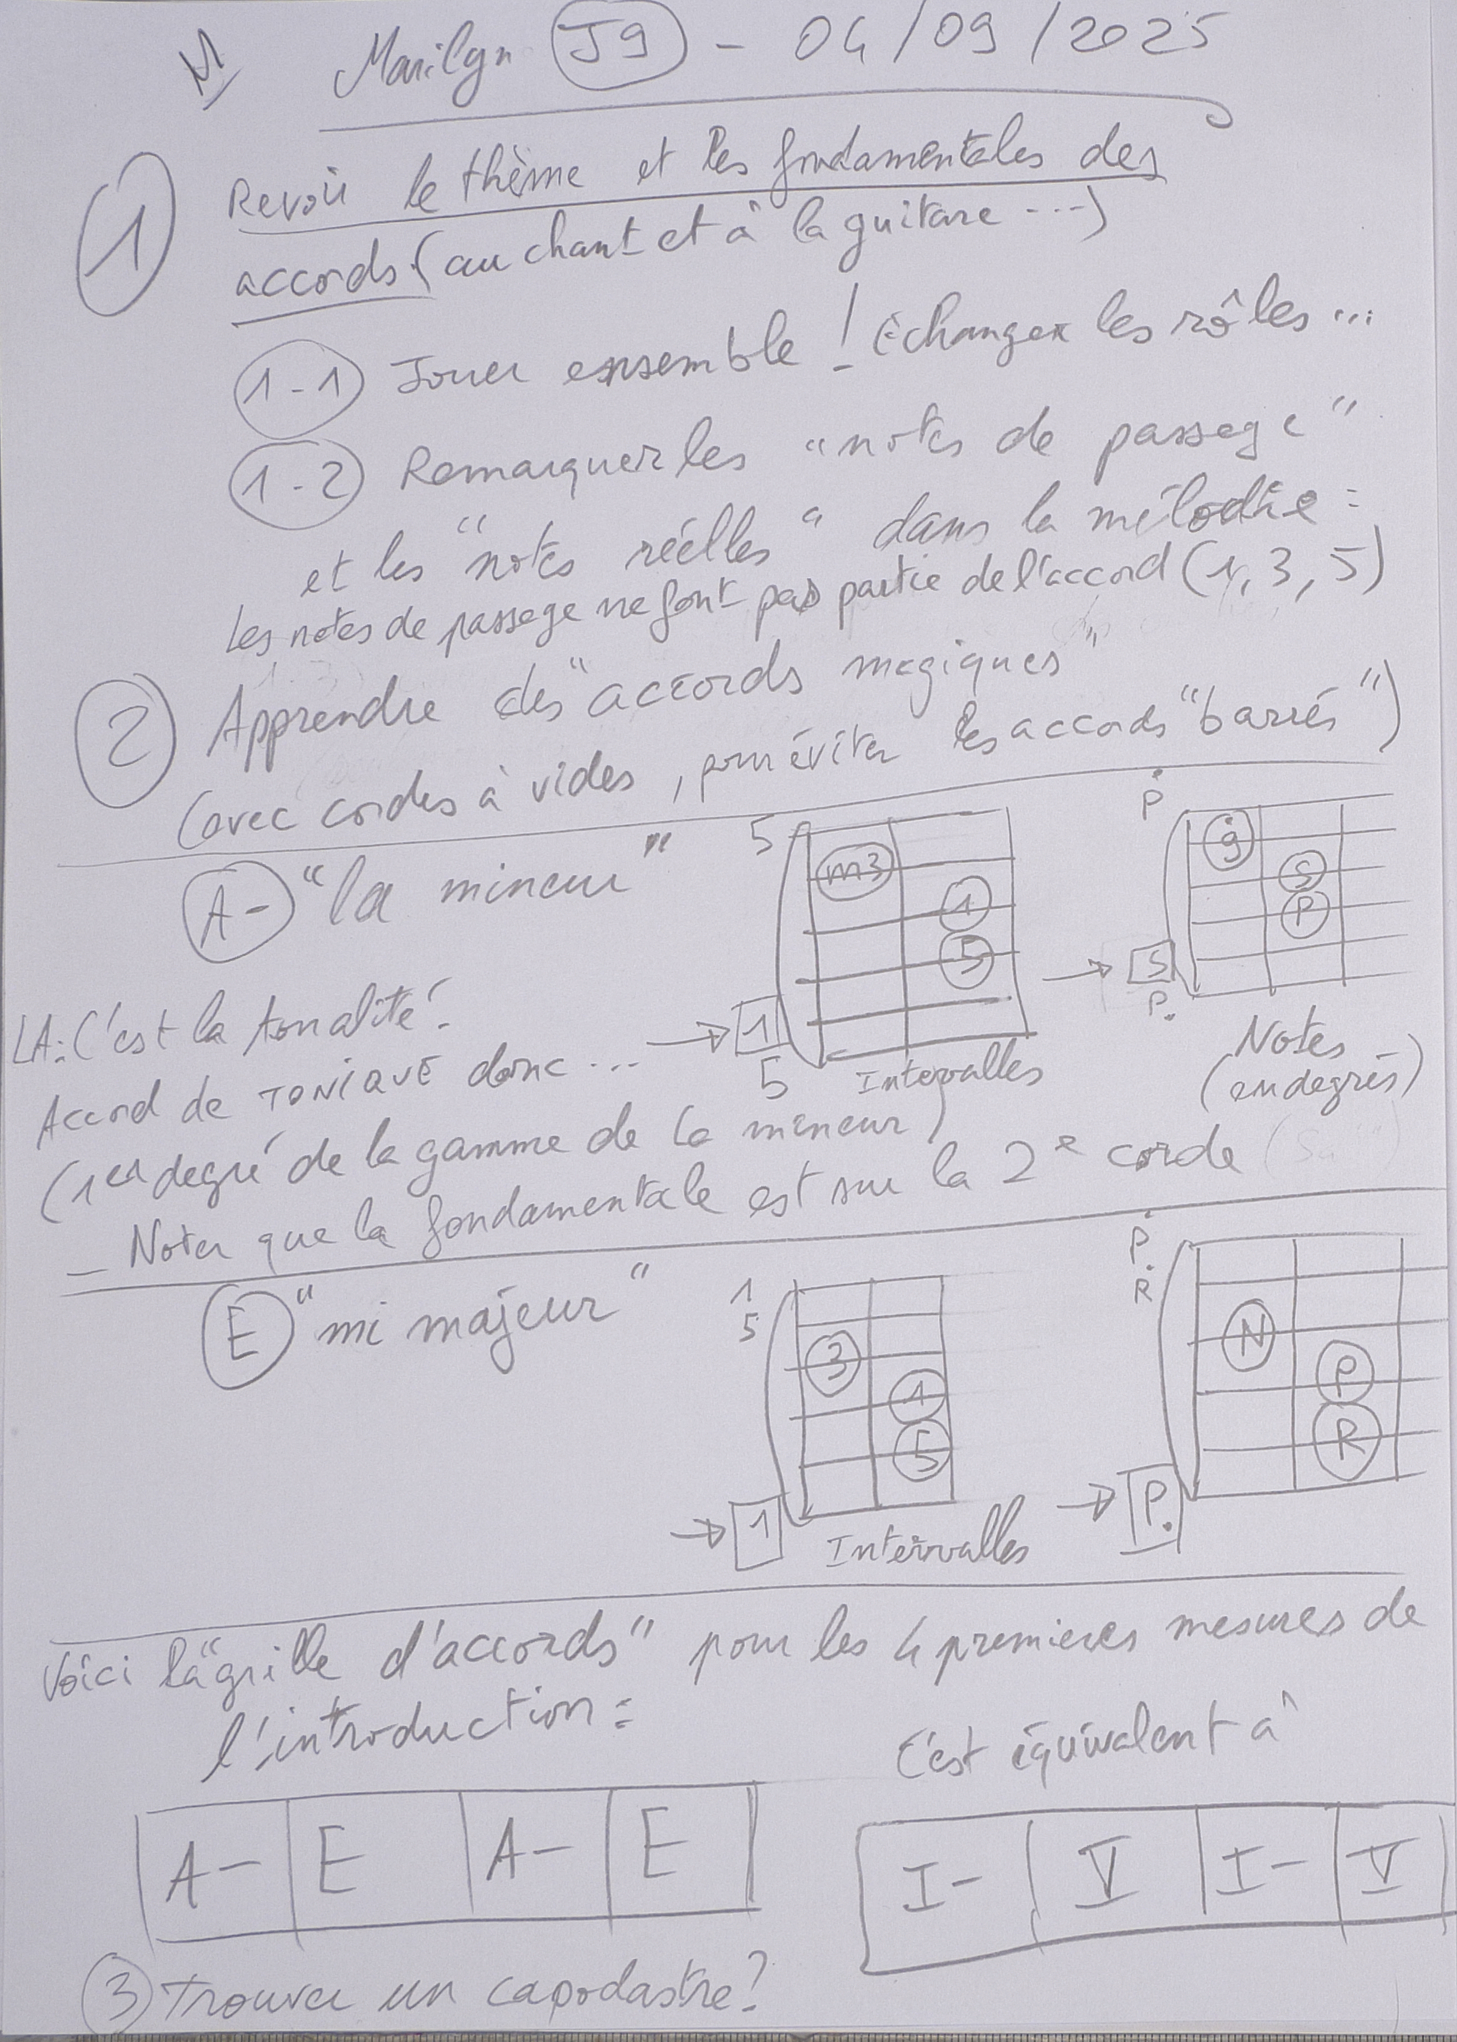 M Marilyn J9 - 04/09/2025
1 Revoir le thème et les fondamentales des
accords (au chant et à la guitare ...)
1-1 Jouer ensemble ! échanger les rôles ...
1-2 Remarquer les "notes de passage"
et les "notes réelles" dans la mélodie :
Les notes de passage ne font pas partie de l'accord (1, 3, 5)
2 Apprendre des "accords magiques"
(avec cordes à vides, pour éviter les accords "barrés")
A- "la mineur"
5
m3
1
5
→ 1
5
Intervalles
P
g
S
P
→ S
P
Notes
(en degrés)
LA : C'est la tonalité.
Accord de TONIQUE donc ...
(1er degré de la gamme de la mineur)
- Noter que la fondamentale est sur la 2e corde
E "mi majeur"
1
5
3
1
5
→ 1
Intervalles
P
R
N
P
R
→ P
Voici la "grille d'accords" pour les 4 premieres mesures de
l'introduction :
C'est équivalent à
A- E A- E
I- V I- V
3 Trouver un capodastre ?